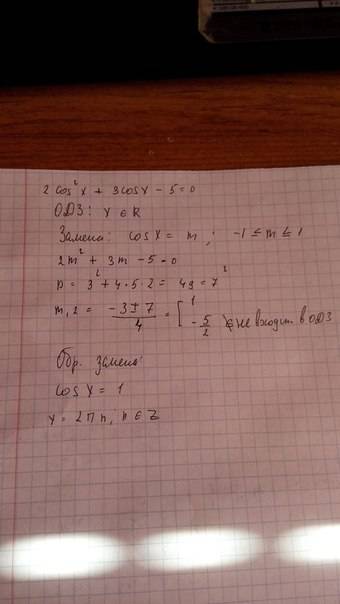 2 cos²x + 3cosx - 5 = 0
ОДЗ: x ∈ R
Замена: cos x = m ; -1 ≤ m ≤ 1
2m² + 3m - 5 = 0
D = 3² + 4·5·2 = 49 = 7²
m₁,₂ = (-3 ± 7)/4 = [ 1
-5/2 не входит в ОДЗ
Обр. замена:
cos x = 1
x = 2πn, n ∈ Z